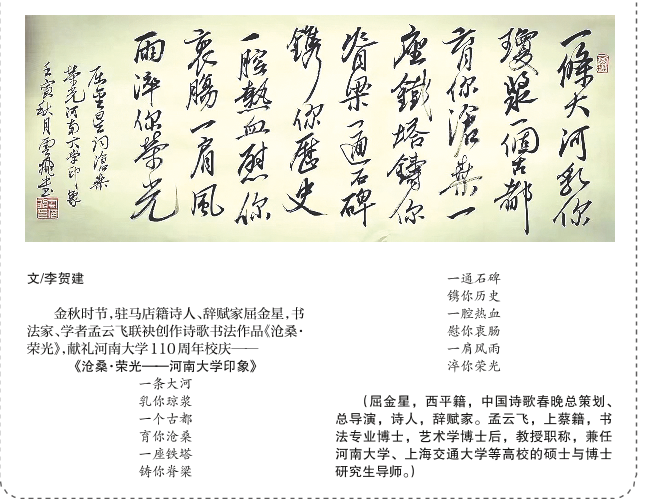 一條大河乳你
瓊漿一個古都
育你滄桑一
座鐵塔鑄你
脊梁一通石碑
鐫你歷史
一腔熱血慰你
衷腸一肩風
雨淬你榮光
屈金星詞滄桑
榮光河南大學印象
壬寅秋月雲飛書
文/李贺建
金秋时节,驻马店籍诗人、辞赋家屈金星,书
法家、学者孟云飞联袂创作诗歌书法作品《沧桑·
荣光》,献礼河南大学110周年校庆——
《沧桑·荣光——河南大学印象》
一条大河
乳你琼浆
一个古都
育你沧桑
一座铁塔
铸你脊梁
一通石碑
镌你历史
一腔热血
慰你衷肠
一肩风雨
淬你荣光
(屈金星，西平籍，中国诗歌春晚总策划、
总导演，诗人，辞赋家。孟云飞，上蔡籍，书
法专业博士，艺术学博士后，教授职称，兼任
河南大学、上海交通大学等高校的硕士与博士
研究生导师。)